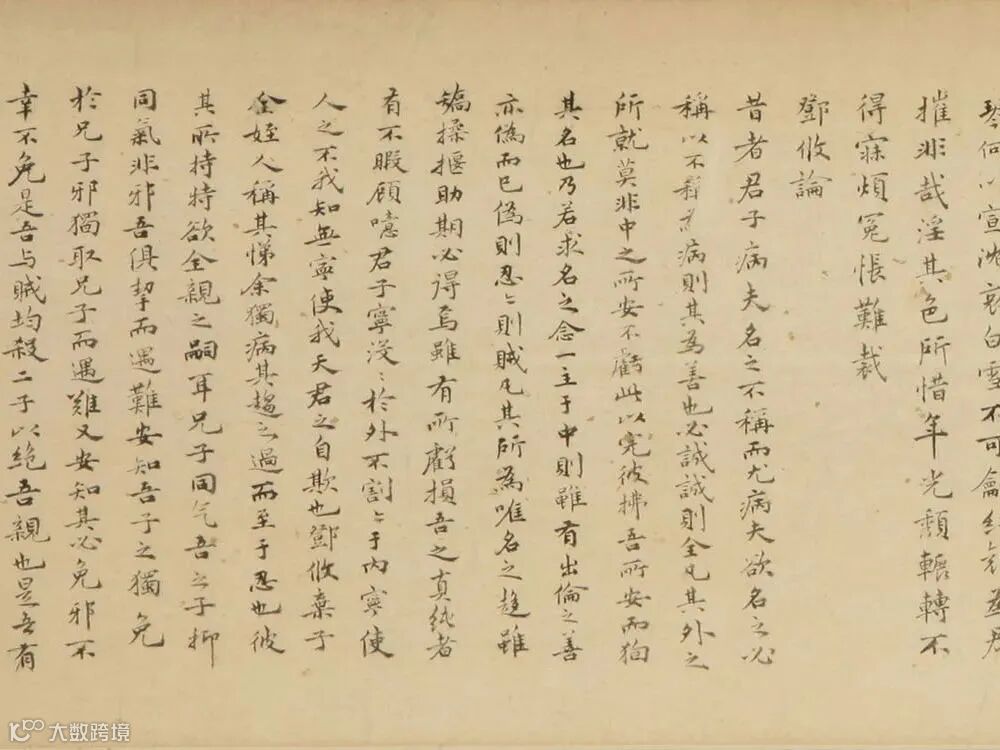 琴何以宣沈哀白雪不可
摧非哉淫其色所惜年光頹輾轉不
得寐煩冤悵難裁
鄧攸論
昔者君子病夫名之不稱而尤病夫欲名之必
稱以不稱為病則其為善也必誠誠則全凡其外之
所就莫非中之所安不虧此以完彼拂吾所安而狥
其名也乃若求名之念一主于中則雖有出倫之善
亦偽而已偽則忍忍則賊凡其所為唯名之趨雖
矯揉揠助期必得焉雖有所虧損吾之真純者
有不暇顧噫君子寧没〻於外不割〻于内寧使
人之不我知無寧使我天君之自欺也鄧攸棄子
全姪人稱其悌余獨病其趨之過而至于忍也彼
其所持特欲全親之嗣耳兄子同气吾之子抑
同氣非邪吾俱挈而遇難安知吾子之獨免
於兄子邪獨取兄子而遇難又安知其必免邪不
幸不免是吾与賊均殺二子以絶吾親也是吾有
大数跨境